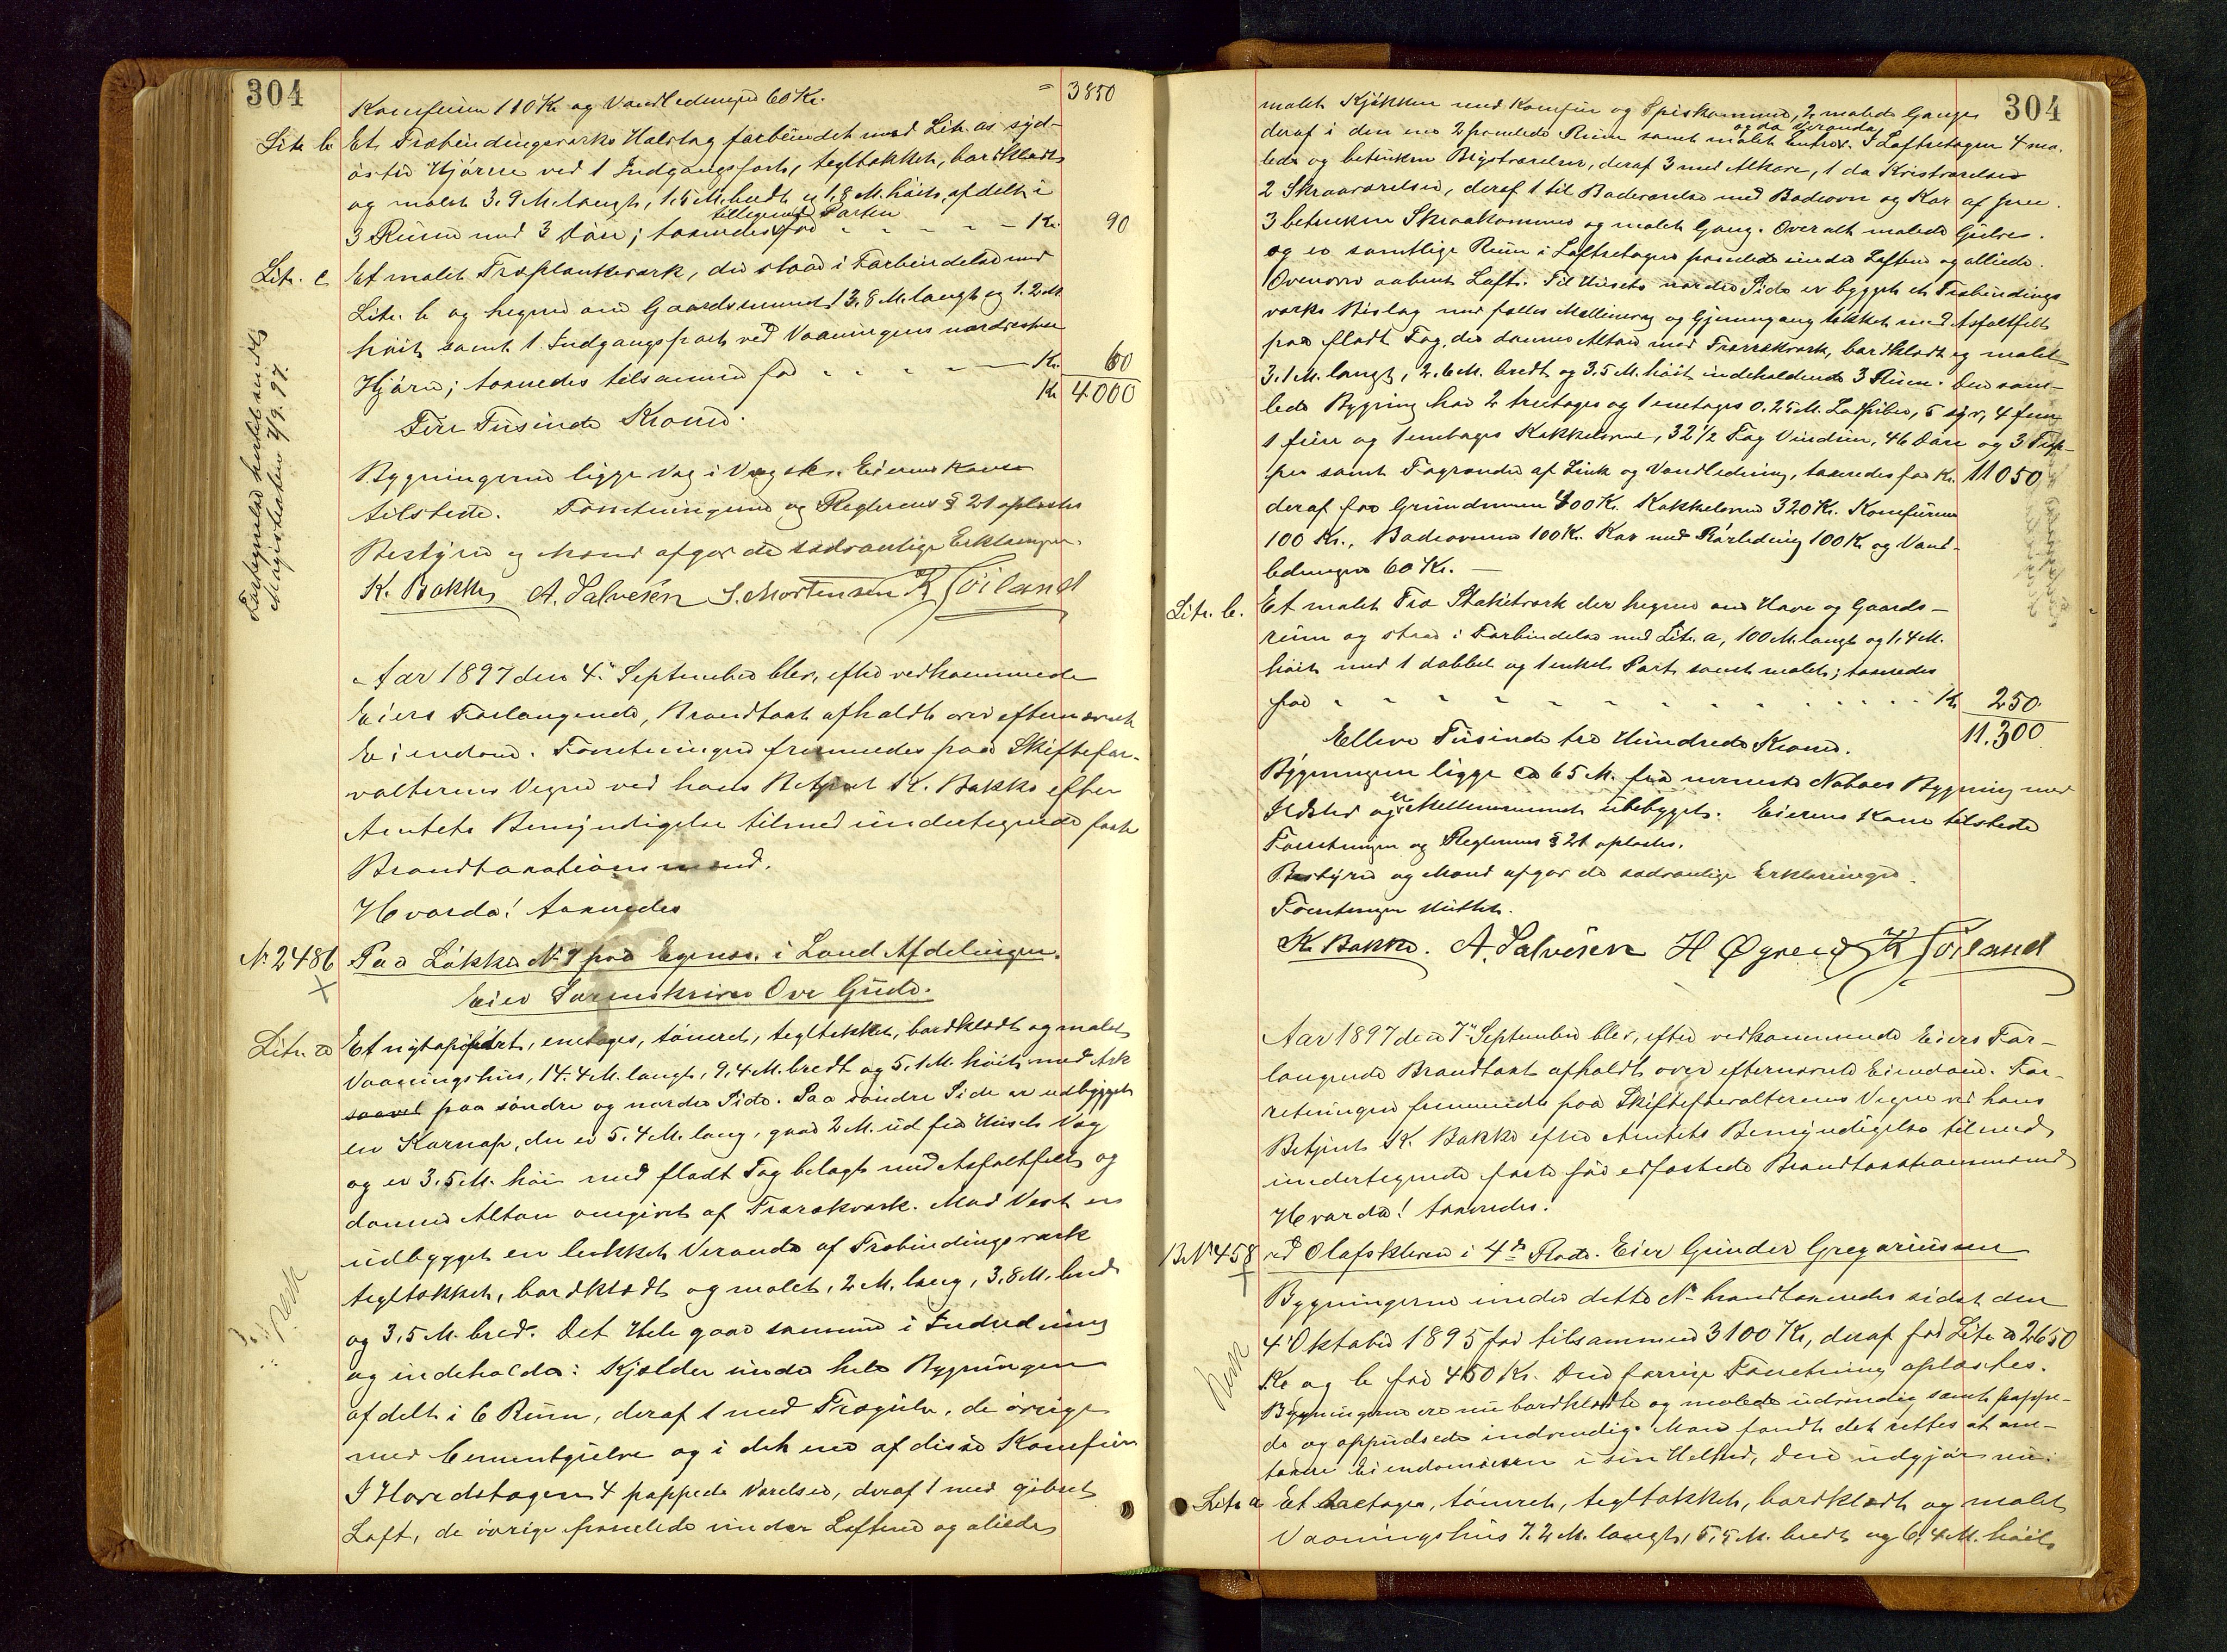 304
Komfuren 110 Kr og Vandledningen 60 Kr. = 3850
Litr. b Et Træbindingsverks Halvtag forbundet med Litr. as syd-
østre Hjørne ved 1 Indgangsport, tegltækket, bordklædt
og malet 3.9 M. langt, 1,5 M. bredt og 1,8 M. høit, afdelt i
tilligemed Porten
3 Rum med 3 Døre; taxeredes for - - - - Kr. 90
Litr. c Et malet Træplankeværk, der staar i Forbindelse med
Litr. b og hegner om Gaardsrummet 13,8 M. langt og 1.2 M
høit samt 1 Indgangsport ved Vaaningens nordvestre
Hjørne; taxeredes tilsammen for - - - - Kr. 60
Kr 4000
Fire Tusinde Kroner.
Bygningerne ligge Væg i Væg etc. Eierens Kone
tilstede. Forretningerne og Reglernes § 21 oplæstes
Bestyrer og Mænd afgav de sædvanlige Erklæringer.
K. Bakke A. Salvesen S. Mortensen K Føiland
Magistraten 7/9. 97.
Aar 1897 den 4. September blev, efter vedkommende
Eiers Forlangende, Brandtaxt afholdt over efternævnte
Eiendom. Forretningen fremmedes paa Skiftefor-
valterens Vegne ved hans Betjent K. Bakke efter
Amtets Bemyndigelse tilmed undertegnede faste
Brandtaxationsmænd.
Hvorda! taxeredes
No 2486 Paa Løkke No 9 paa Egenæs i Land Afdelingen.
Eier Sorenskriver Ove Gude.
Litr. a Et nyt opført, enetages, tømret, tegltækket, bordklædt og malet
Vaaningshus, 14.4 M. langt, 9,4 M. bredt og 5,1 M. høit, med Ark
saavel paa søndre og nordre Side. Paa søndre Side er udbygget
en Karnap, der er 5.4 M. lang, gaar 2 M. ud fra Husets Væg
og er 3.5 M. høi med fladt Tag belagt med Asfaltfilt og
danner Altan omgivet af Trærækværk. Mod Vest er
udbygget en lukket Veranda af Træbindingsværk
tegltækket, bordklædt og malet, 2 M. lang, 3,8 M. bred
og 3,5 M. bred. Det Hele gaar sammen i Indredning
og indeholder: Kjælder under hele Bygningen
afdelt i 6 Rum, deraf 1 med Trægulv, de øvrige
med Cementgulve og i det ene af disse Komfur
I Hovedetagen 4 pappede Værelser, deraf 1 med gibset
Loft, de øvrige panelede under Loftene og oliede
304
malet Kjøkken med Komfur og Spiskammer, 2 malede Gange
deraf i den ene 2 panelede Rum samt malet Entree. I Loftsetagen 4 ma-
og do Veranda
lede og betrukne Bigtværelser, deraf 3 med Alkove, 1 do Kvistværelse
2 Skraaværelser, deraf 1 til Badeværelse med Badeovn og Kar af
3 betrukne Skraakammer og malet Gang. Overalt malede Gulve.
og er samtlige Rum i Loftsetagen panelede under Loftene og oliede.
Ovenover aabent Loft. Til Husets nordre Side er bygget et Træbindings
værks Bislag med fælles Mellemvæg og Gjennemgang tækket med Asfaltfilt
paa fladt Tag, der danner Altan med Trærækværk, bordklædt og malet
3,1 M. langt, 2,6 M. bredt og 3.5 M. høit indeholdende 3 Rum. Den sam-
lede Bygning har 2 treetages og 1 enetages 0.25 M. Lodpiber, 5 syv, 4 fem
1 fire og 1 enetages Kakkelovne, 32 1/2 Fag Vinduer, 46 Døre og 3 Trap-
per samt Tagrender af Zink og Vandledning, taxeredes for Kr. 11050
deraf for Grundmuren 400 Kr. Kakkelovne 320 Kr. Komfuren
100 Kr., Badeovnen 100 Kr. Kar med Rørledning 100 Kr og Vand-
ledningen 60 Kr. -
Litr. b. Et malet Træ Stakitværk der hegner om Have og Gaards-
rum og staar i Forbindelse med Litr. a, 100 M. langt og 1,4 M.
høit med 1 dobbel og 1 enkelt Port samt malet; taxeredes
for - - - - - - - - - - - - Kr 250.
11.300
Elleve Tusinde tre Hundrede Kroner.
Bygningerne ligge ca 65 M. fra nærmeste Naboes Bygning med
Ildsted og er Mellemrummet ubebygget. Eierens Kone tilstede
Forretningen og Reglernes § 21 oplæstes.
Bestyrer og Mænd afgav de sædvanlige Erklæringer.
Forretningen sluttet.
K. Bakke. A. Salvesen H Øgreid K Føiland
Aar 1897 den 7. September blev, efter vedkommende Eiers For-
langende Brandtaxt afholdt over efternævnte Eiendom. For-
retningen fremmedes paa Skifteforvalterens Vegne ved hans
Betjent K. Bakke efter Amtets Bemyndigelse tilmed
undertegnede faste før edfæstede Brandtaxationsmænd
Hvorda! taxeredes:
B No 458 ved Olafskleven i 4de Rode. Eier Gunder Gregoriussen
Bygningerne under dette No brandtaxeredes sidst den
4 Oktober 1895 for tilsammen 3100 Kr, deraf for Litr. a 2650
Kr og b for 450 Kr. Den forrige Forretning oplæstes.
Bygningerne ere nu bordklædte og malede udvendig samt pappe-
de og oppudsede indvendig. Man fandt det rettes at om-
taxere Eiendommen i sin Helhed, den udgjør nu:
Litr a Et toetages, tømret, tegltækket, bordklædt og malet
Vaaningshus 7.2 M. langt, 5,5 M. bredt og 6,4 M. høit